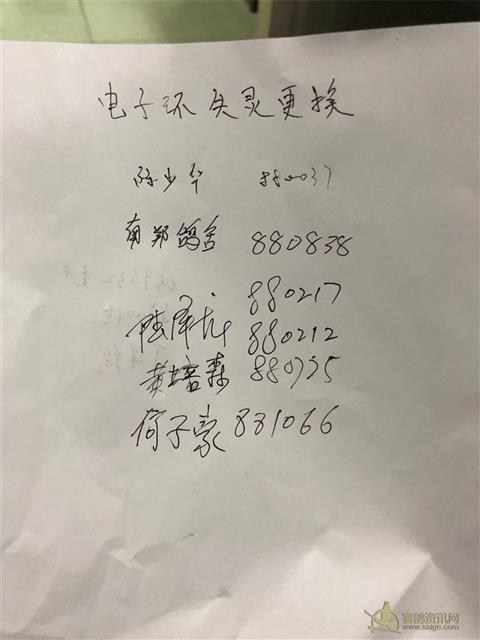 电子环失灵更换
陈少华 880037
南郑鸽舍 880838
880217
陆军龙 880212
黄培森 880795
何子豪 881066
赛鸽资讯网
www.saige.com